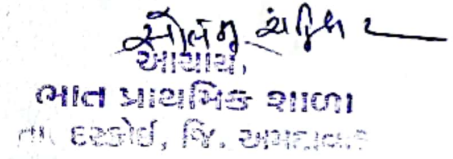 આચાર્ય,
ભાત પ્રાથમિક શાળા
તા. દસ્ક્રોઈ, જિ. અમદાવાદ